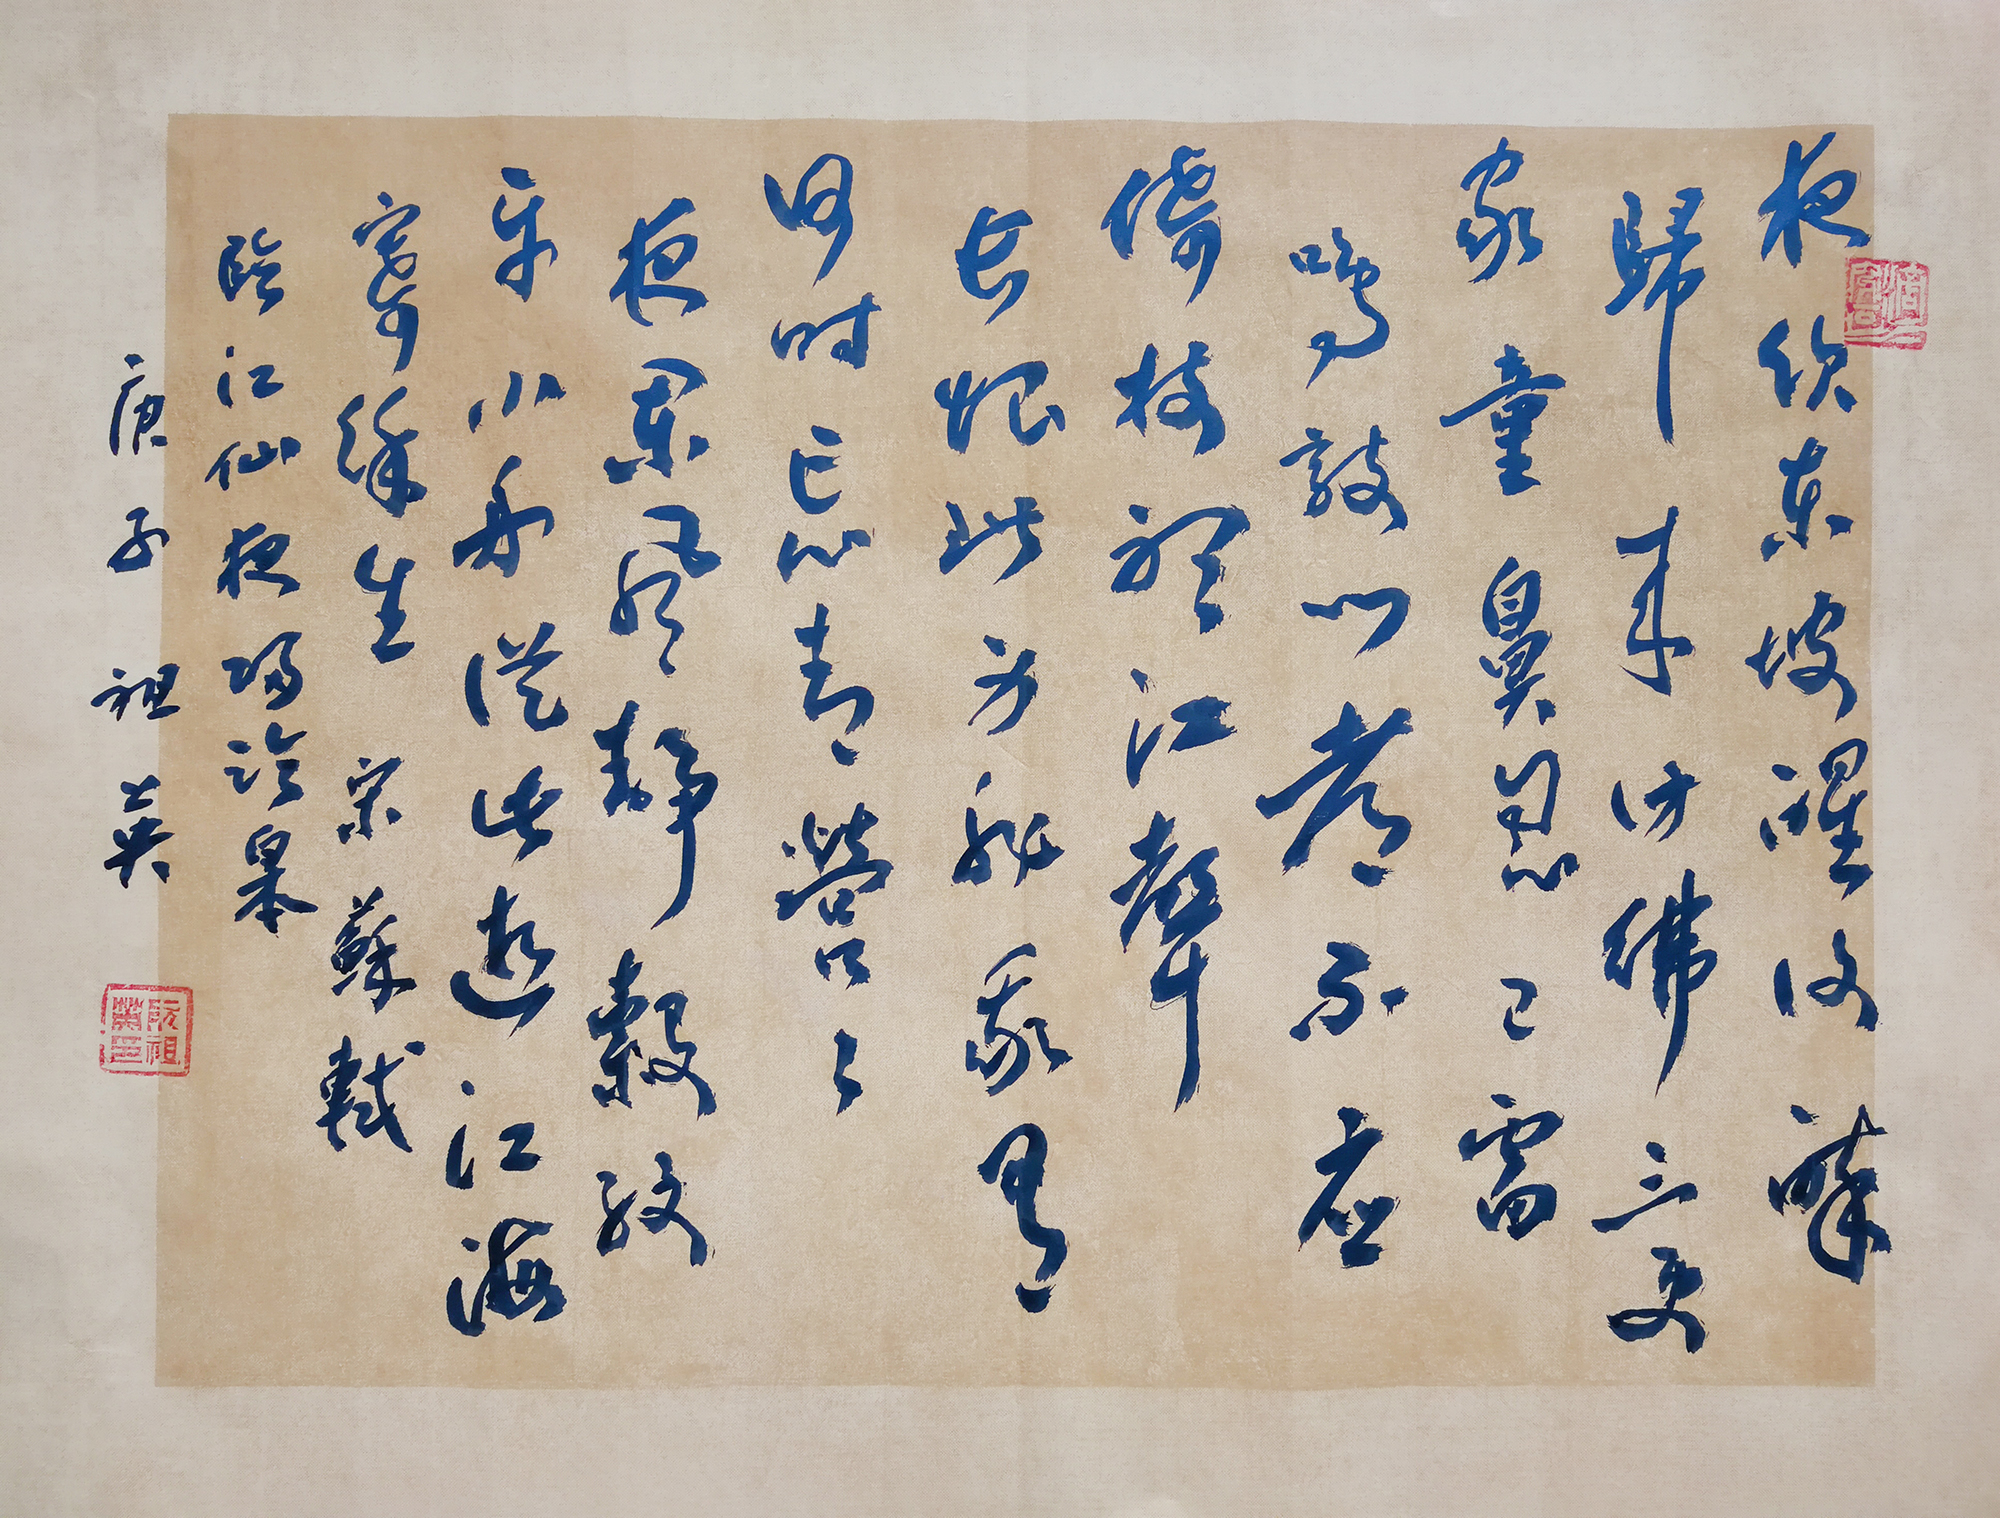 夜饮东坡醒復醉
歸来仿佛三更
家童鼻息已雷
鸣敲门都不应
倚杖听江聲
长恨此身非我有
何时忘却營〻
夜阑风静縠纹
平小舟從此逝江海
寄馀生 宋 蘇軾
临江仙夜归临皋
庚子 祖英
阮祖英印